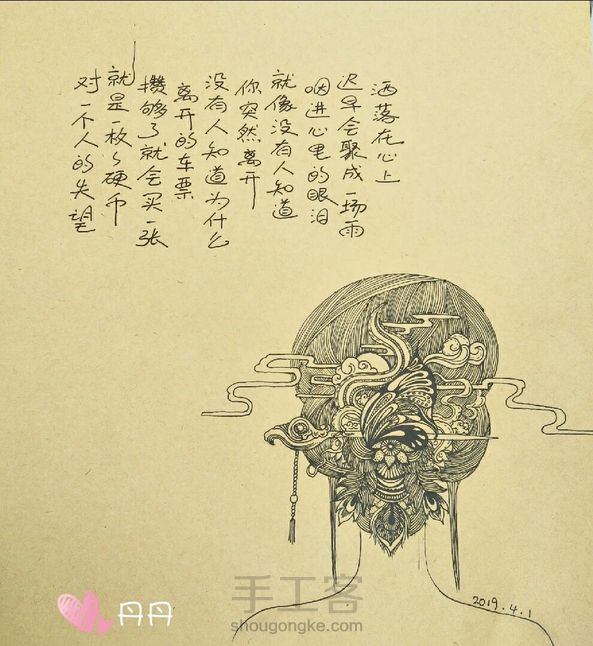 对一个人的失望
就是一枚々硬币
攒够了就会买一张
离开的车票
没有人知道为什么
你突然离开
就像没有人知道
咽进心里的眼泪
迟早会聚成一场雨
洒落在心上
2019.4.1
丹丹
手工客
shougongke.com